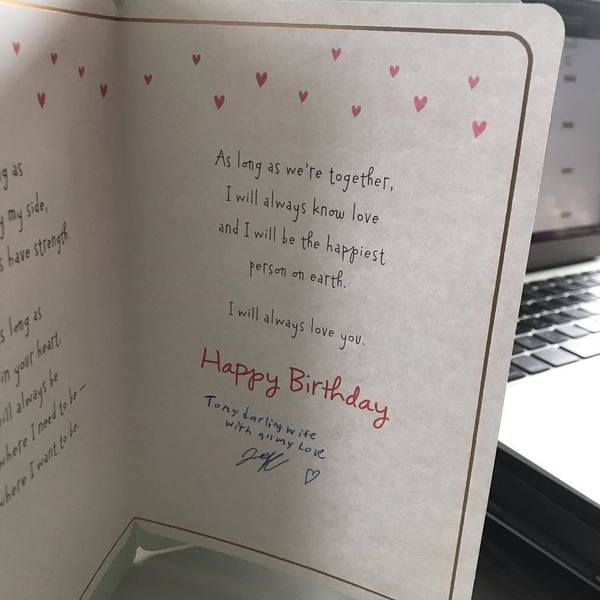 g as
y my side,
s have strength.
s long as
in your heart,
will always be
where I need to be —
where I want to be.
As long as we're together,
I will always know love
and I will be the happiest
person on earth.
I will always love you.
Happy Birthday
To my darling wife
with all my Love
Jeff